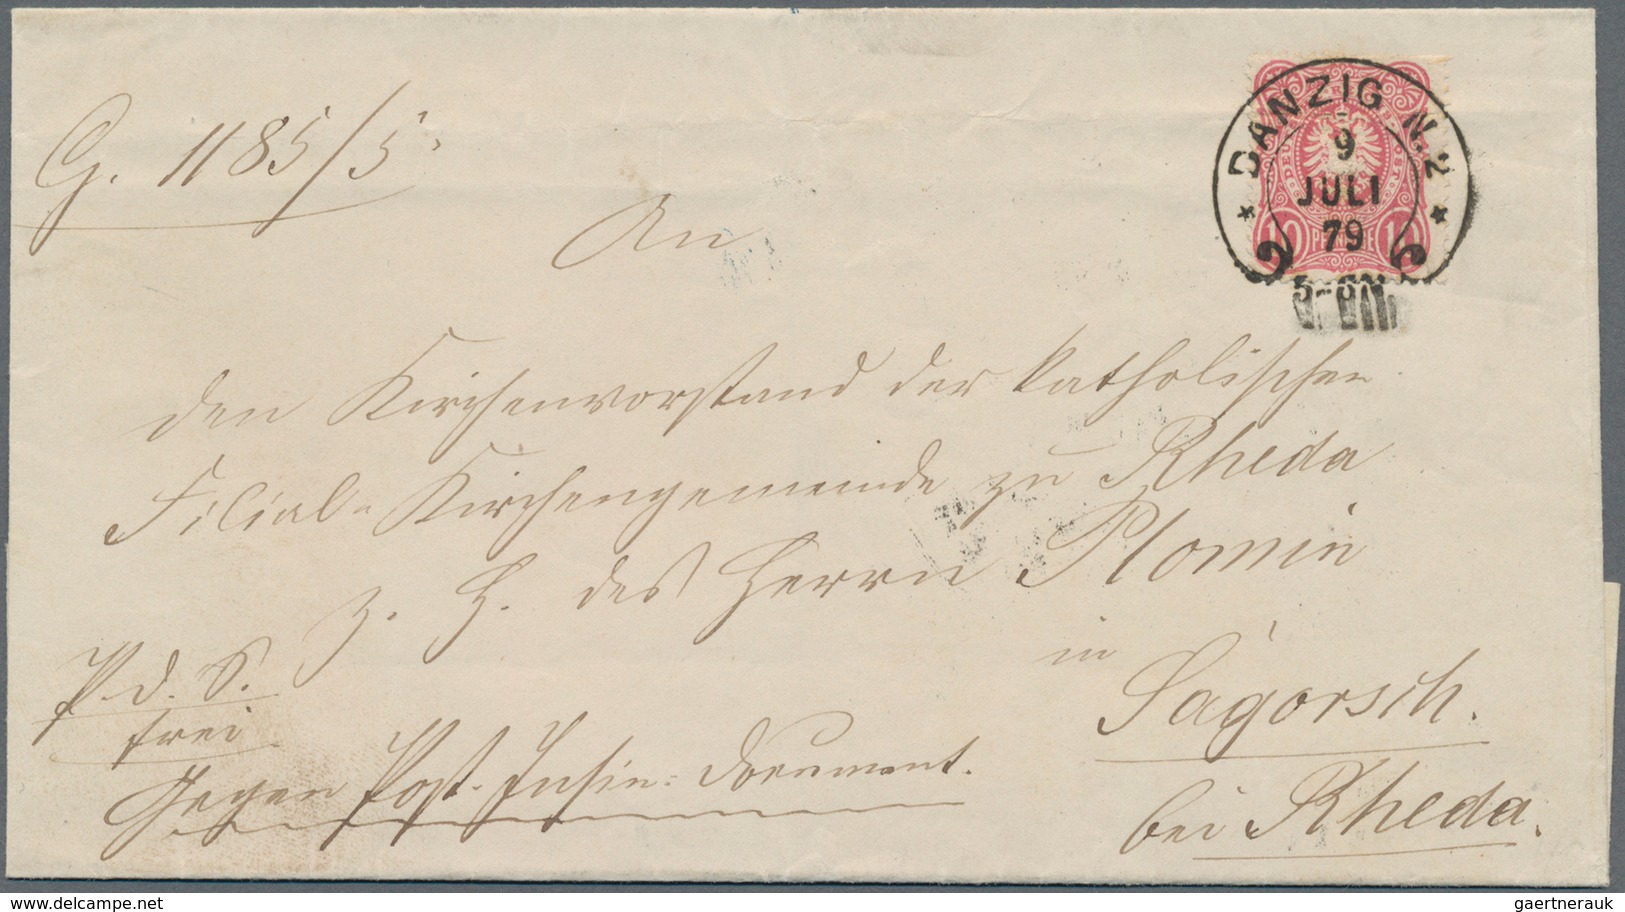 G. 1185/5.
An
den Kirchenvorstand der katholischen
Filial-Kirchengemeinde zu Rheda
z. H. des Herrn Plomin
in
Sagorsch.
bei Rheda.
P. d. S.
frei
Gegen Post-Insin: Document.
DANZIG N.2
9
JULI
79
10 PFENNIGE 10
delcampe.net
gaertnerauk